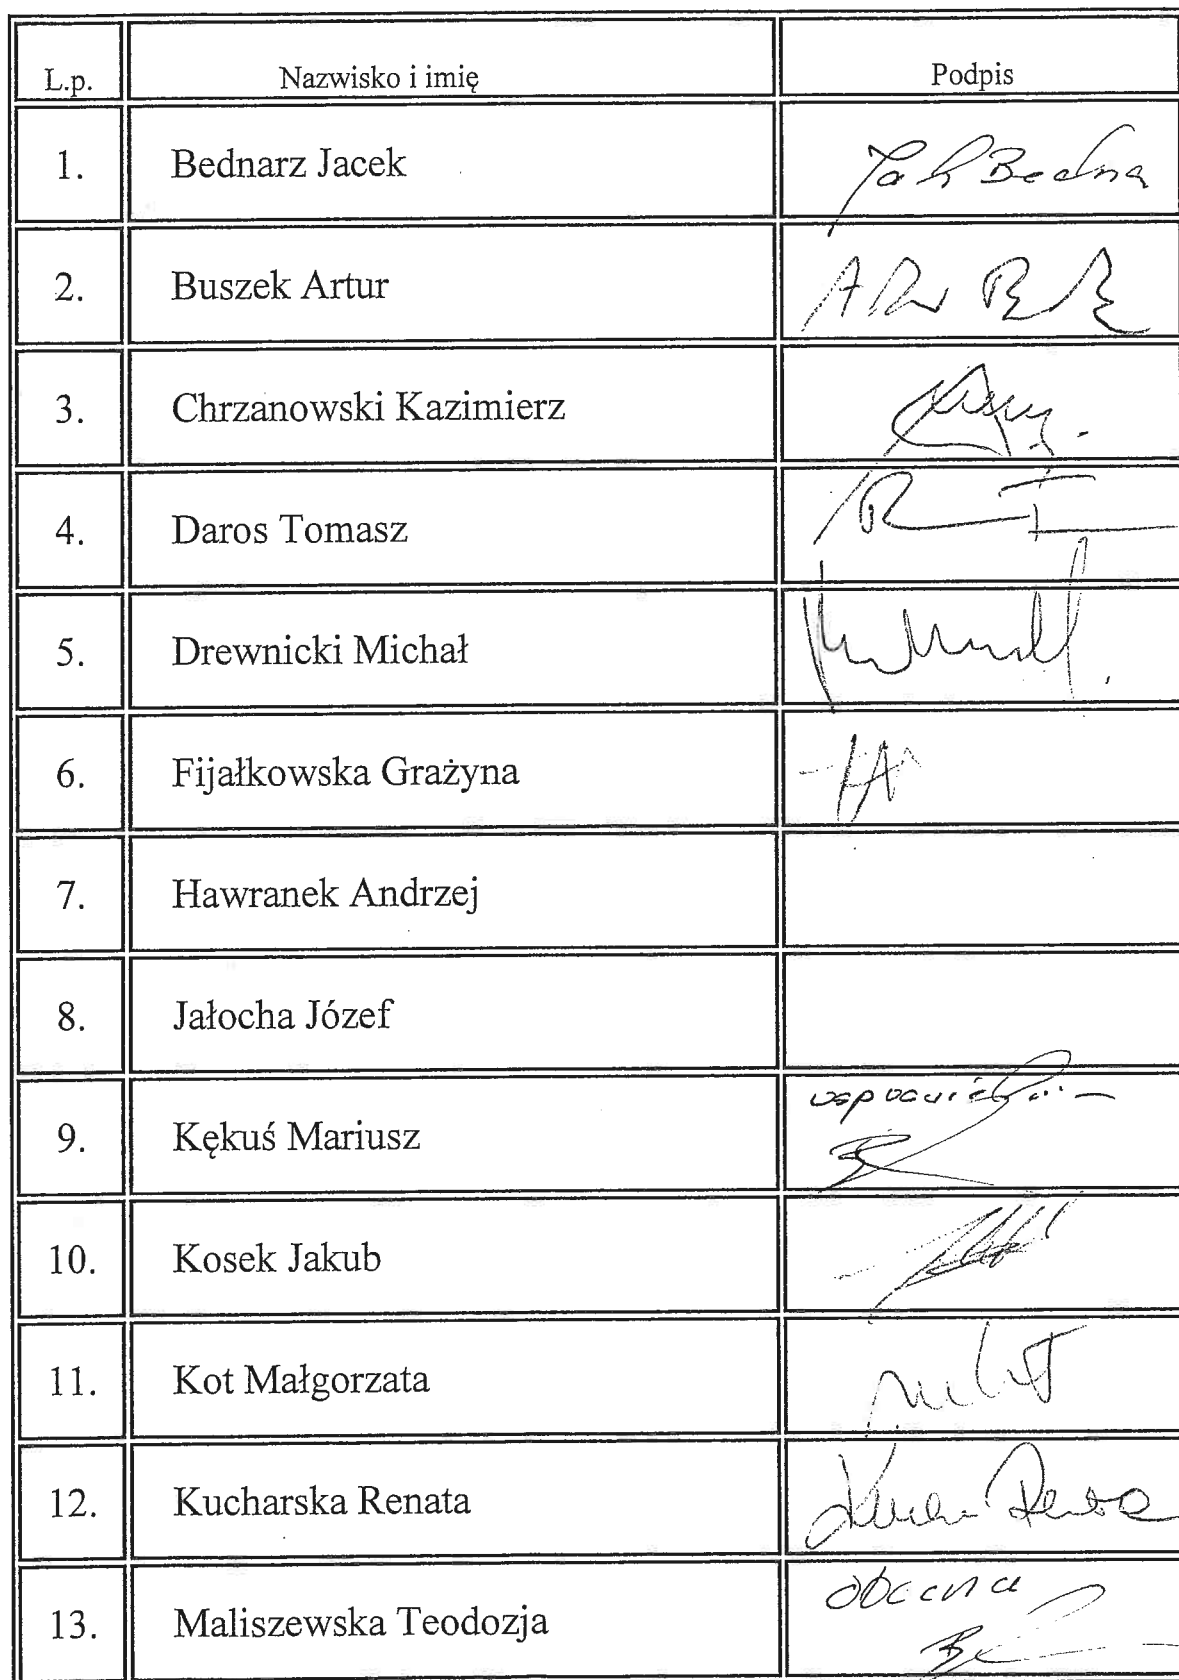 L.p. Nazwisko i imię Podpis
1. Bednarz Jacek
2. Buszek Artur
3. Chrzanowski Kazimierz
4. Daros Tomasz
5. Drewnicki Michał
6. Fijałkowska Grażyna
7. Hawranek Andrzej
8. Jałocha Józef
9. Kękuś Mariusz
10. Kosek Jakub
11. Kot Małgorzata
12. Kucharska Renata
13. Maliszewska Teodozja obecna